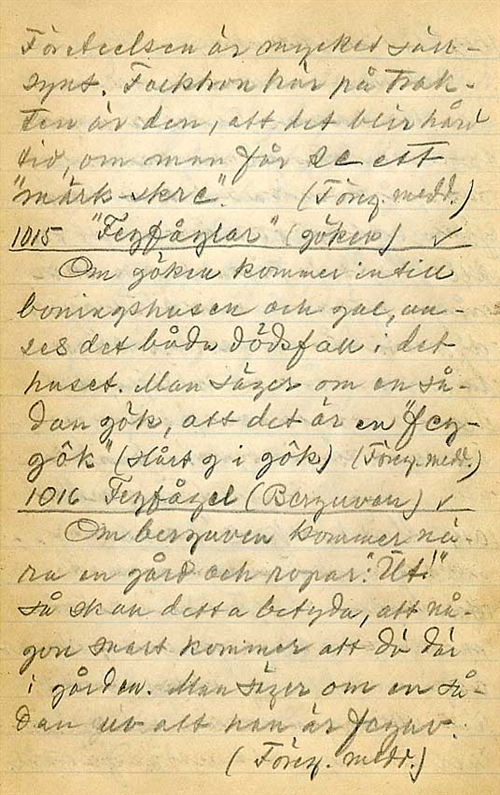 Företeelsen är mycket säll-
synt. Folktron här på trak-
ten är den, att det blir hård
tid, om man får se ett
"märk-skre". (Föreg. medd.)
1015 "Fegfåglar" (göken) ✓
Om göken kommer intill
boningshusen och gal, an-
ses det båda dödsfall i det
huset. Man säger om en så-
dan gök, att det är en "feg-
gök" (Hårt g i gök) (Föreg. medd.)
1016 Fegfågel (Berguven) ✓
Om berguven kommer nä-
ra en gård och ropar: "Ut!"
så skan detta betyda, att nå-
gon snart kommer att dö där
i gården. Man säger om en så-
dan uv att han är feguv.
(Föreg. medd.)